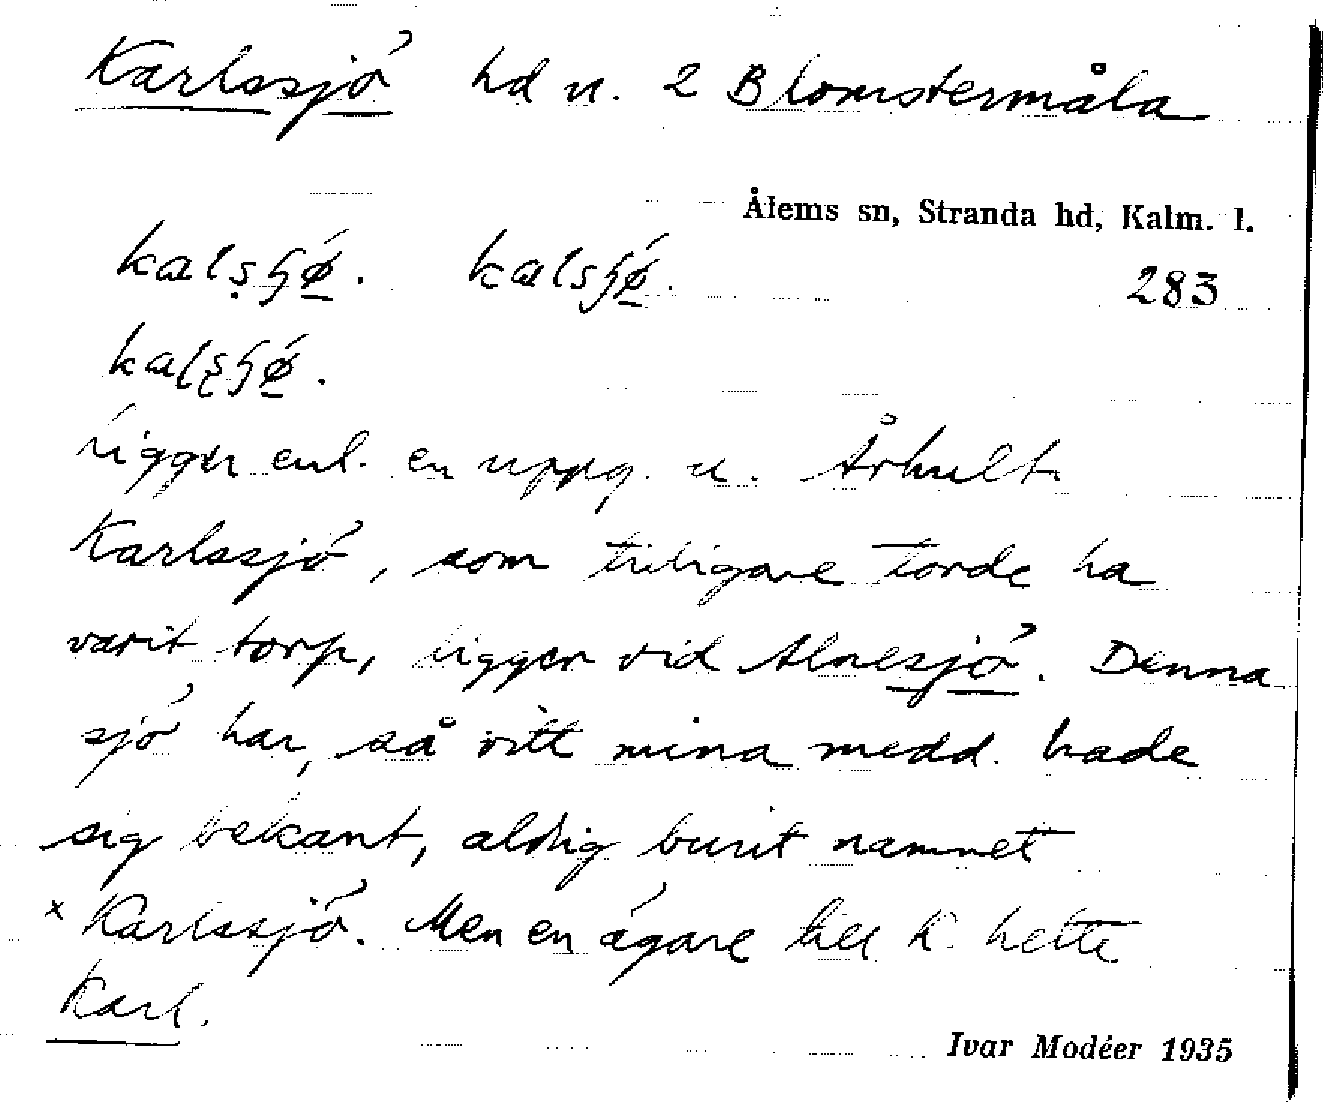 Karlssjö hd u. 2 Blomstermåla
Ålems sn, Stranda hd, Kalm. l.
283
Ligger enl. en uppg. u. Århult
Karlssjö, som tidigare torde ha
varit torp, ligger vid Alnesjö. Denna
sjö har, så vitt mina medd. hade
sig bekant, aldrig burit namnet
x Karlssjö. Men en ägare till K. hette
Karl.
Ivar Modéer 1935